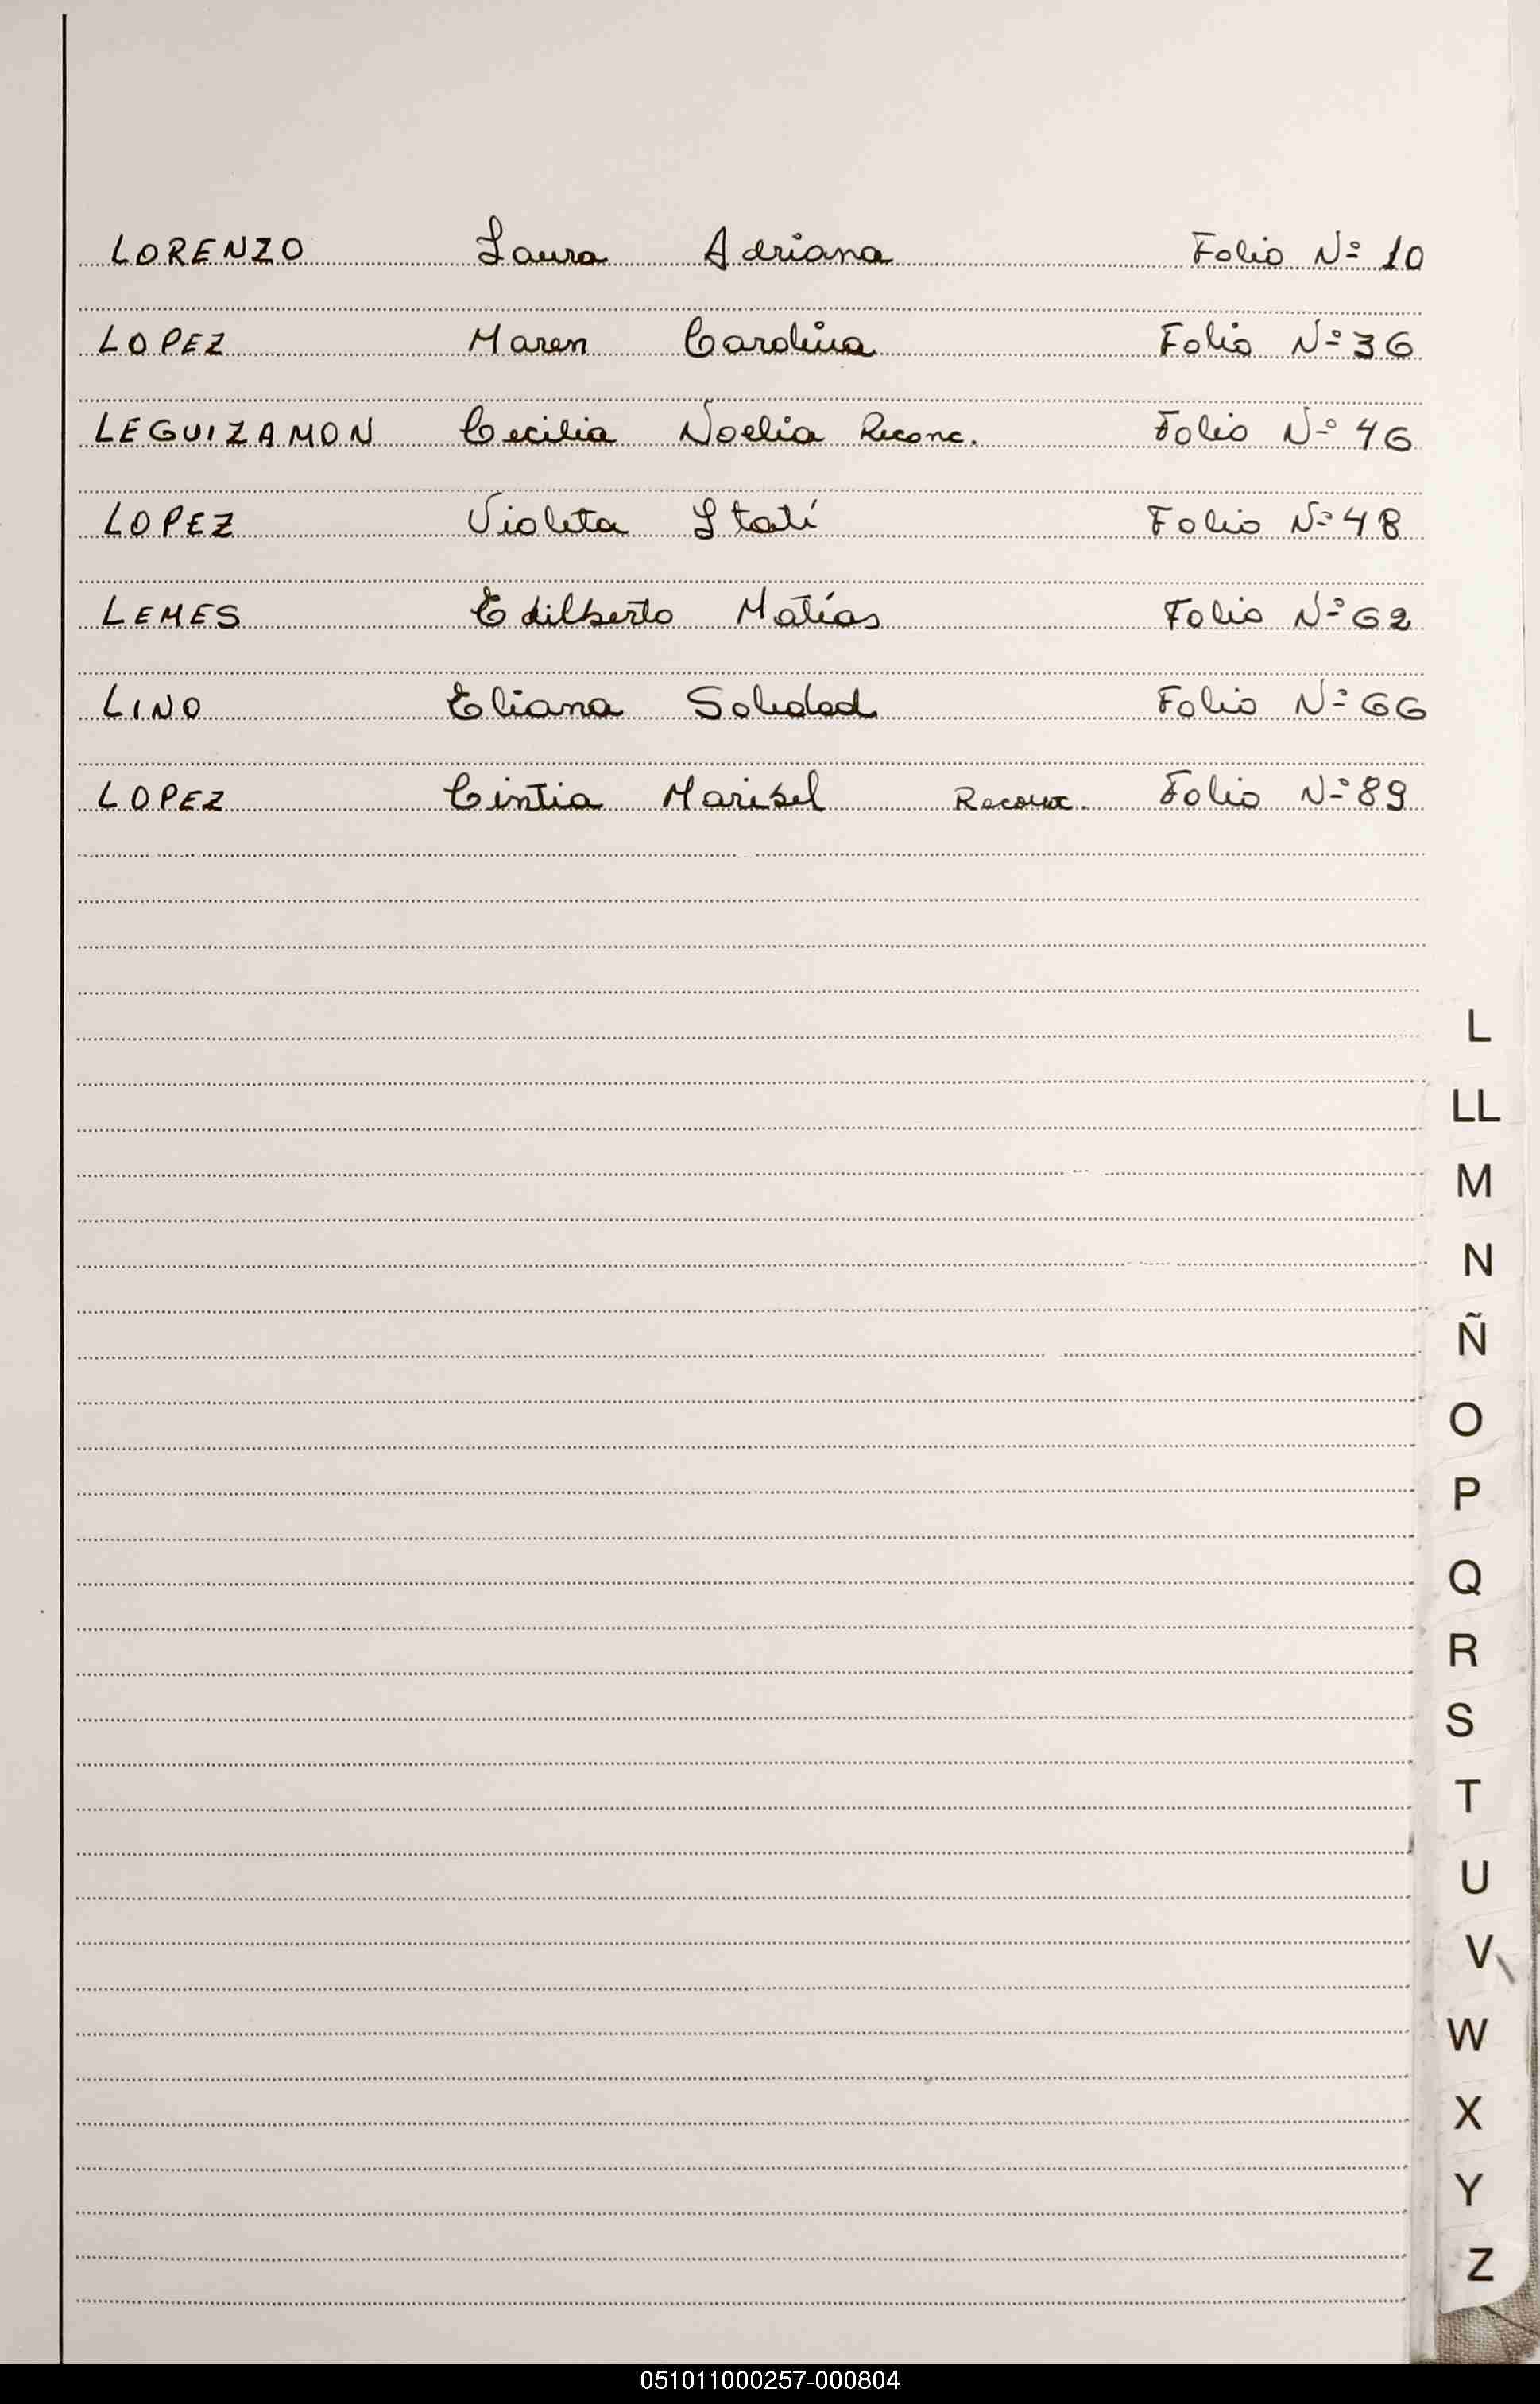 LORENZO Laura Adriana Folio Nº 10
LOPEZ Maren Carolina Folio Nº 36
LEGUIZAMON Cecilia Noelia Reconc. Folio Nº 46
LOPEZ Violeta Itatí Folio Nº 48
LEMES Edilberto Matías Folio Nº 62
LINO Eliana Soledad Folio Nº 66
LOPEZ Cintia Marisel Folio Nº 89
L
LL
M
N
Ñ
O
P
Q
R
S
T
U
V
W
X
Y
Z
051011000257-000804